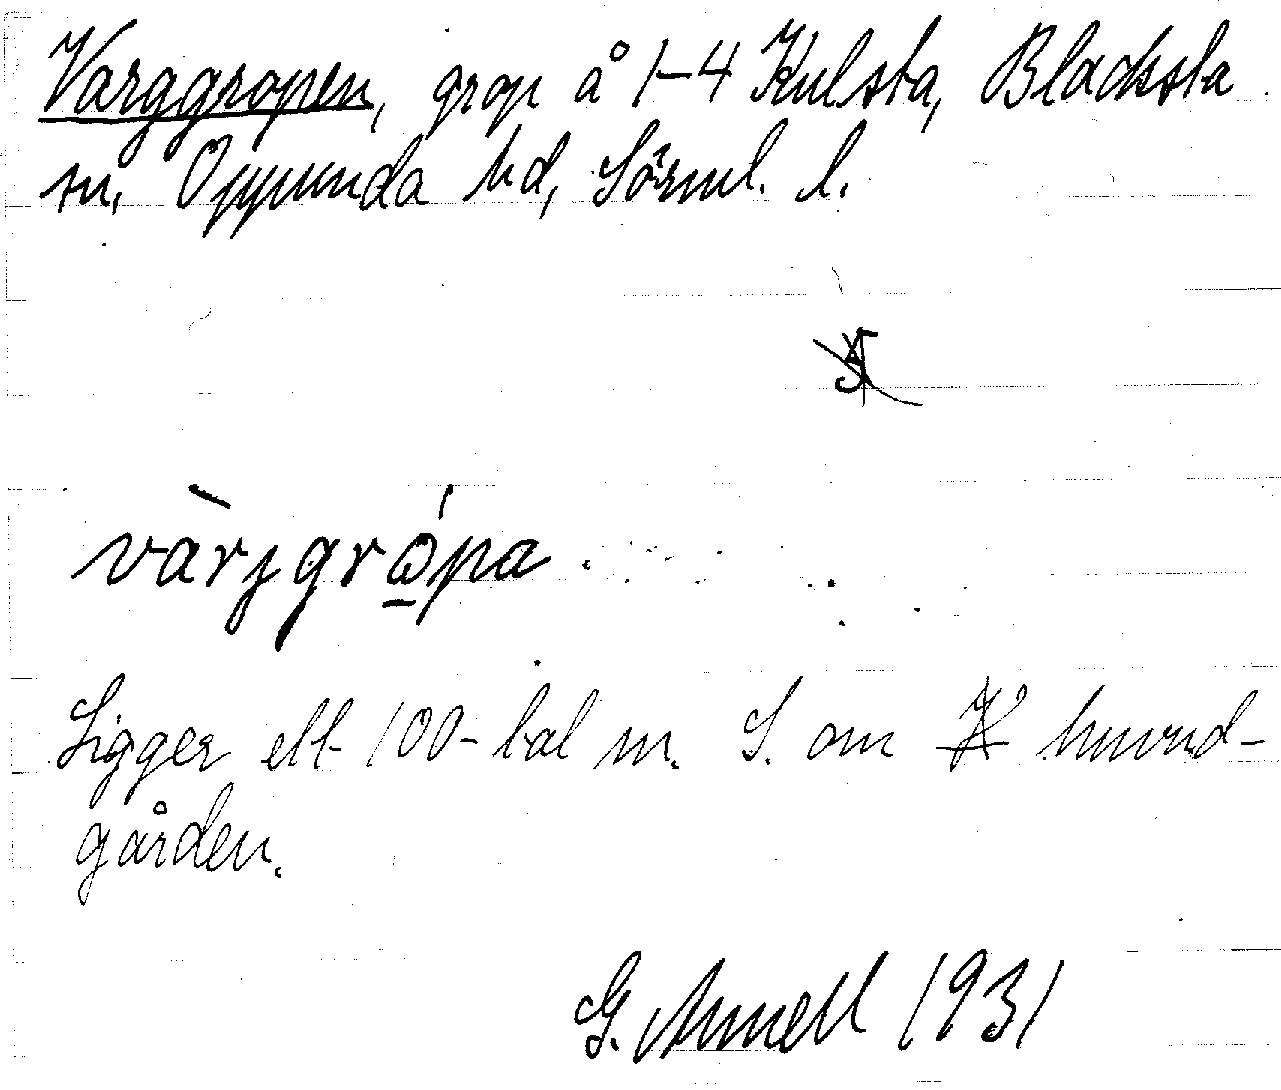 Varggropen, grop å 1-4 Kulsta, Blacksta
sn. Oppunda hd, Sörml. l.
và̀rjgrǫ́pa
Ligger ett 100-tal m. S. om huvud-
gården.
G. Annell 1931